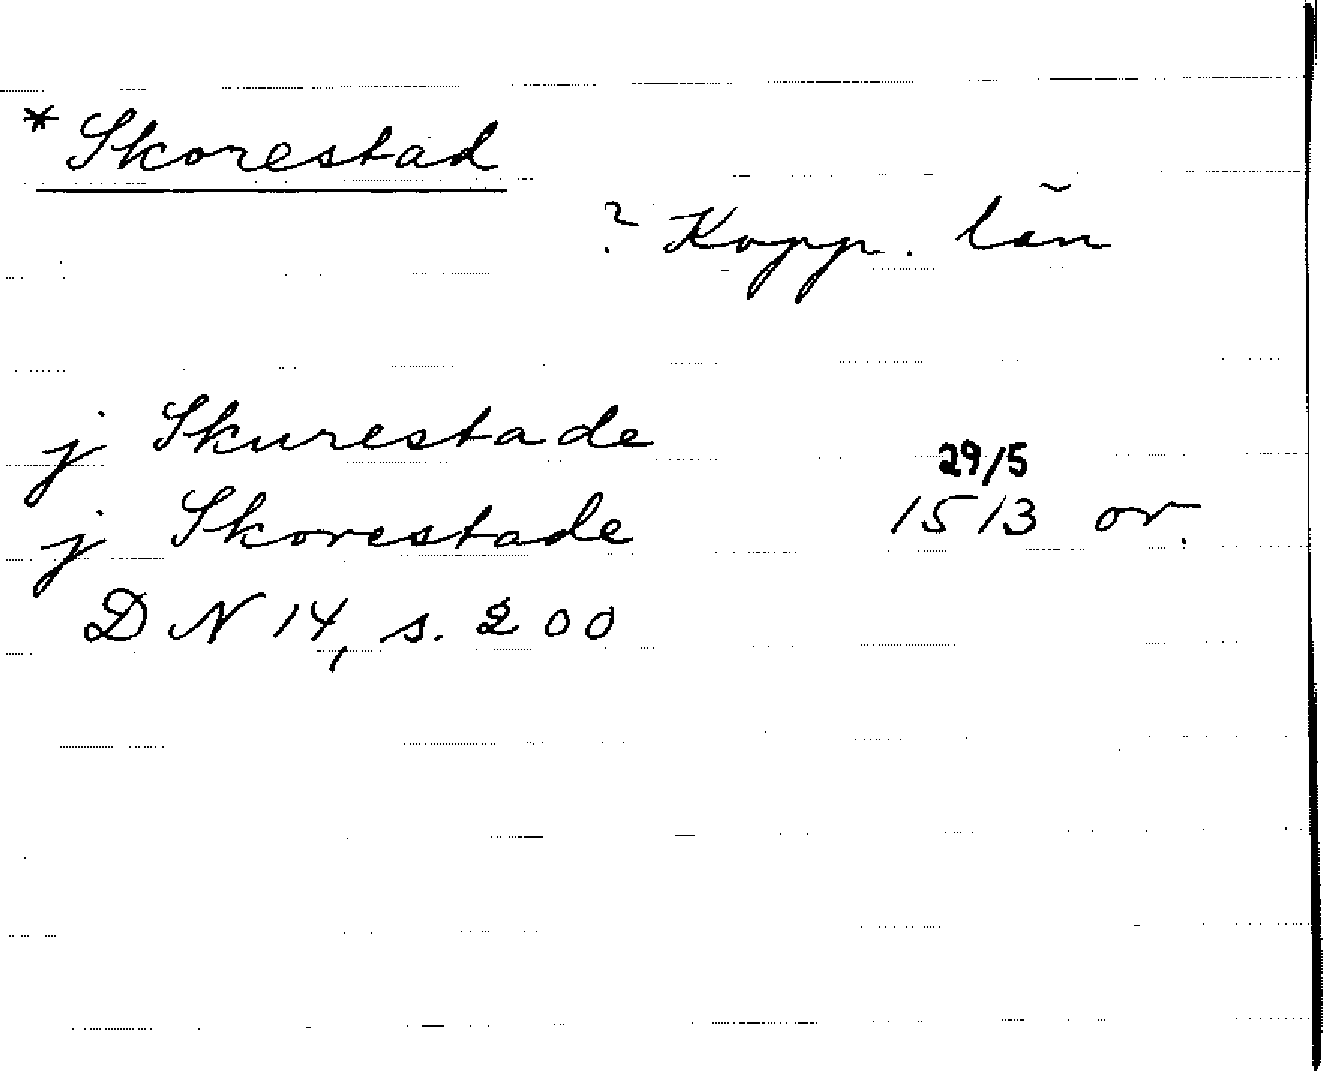 * Skorestad
? Kopp. län
j Skurestade
29/5
j Skorestade 1513 or.
DN 14, s. 200